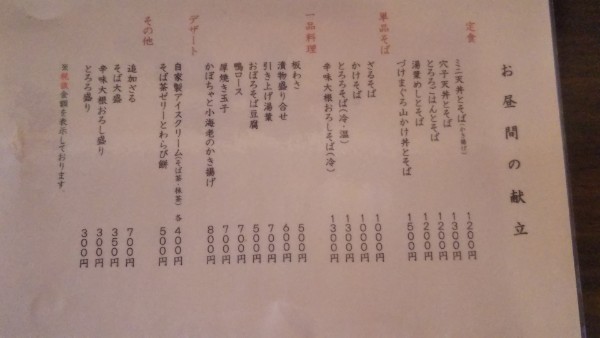 お昼間の献立
定食
ミニ天丼とそば(かき揚げ) 1200円
穴子天丼とそば 1300円
とろろごはんとそば 1200円
湯葉めしとそば 1200円
づけまぐろ山かけ丼とそば 1500円
単品そば
ざるそば 1000円
かけそば 1000円
とろろそば(冷・温) 1300円
辛味大根おろしそば(冷) 1300円
一品料理
板わさ 500円
漬物盛り合せ 600円
引き上げ湯葉 700円
おぼろそば豆腐 500円
鴨ロース 700円
厚焼き玉子 700円
かぼちゃと小海老のかき揚げ 800円
デザート
自家製アイスクリーム(そば茶・抹茶) 各400円
そば茶ゼリーとわらび餅 500円
その他
追加ざる 700円
そば大盛 350円
辛味大根おろし盛り 300円
とろろ盛り 300円
※税抜金額を表示しております